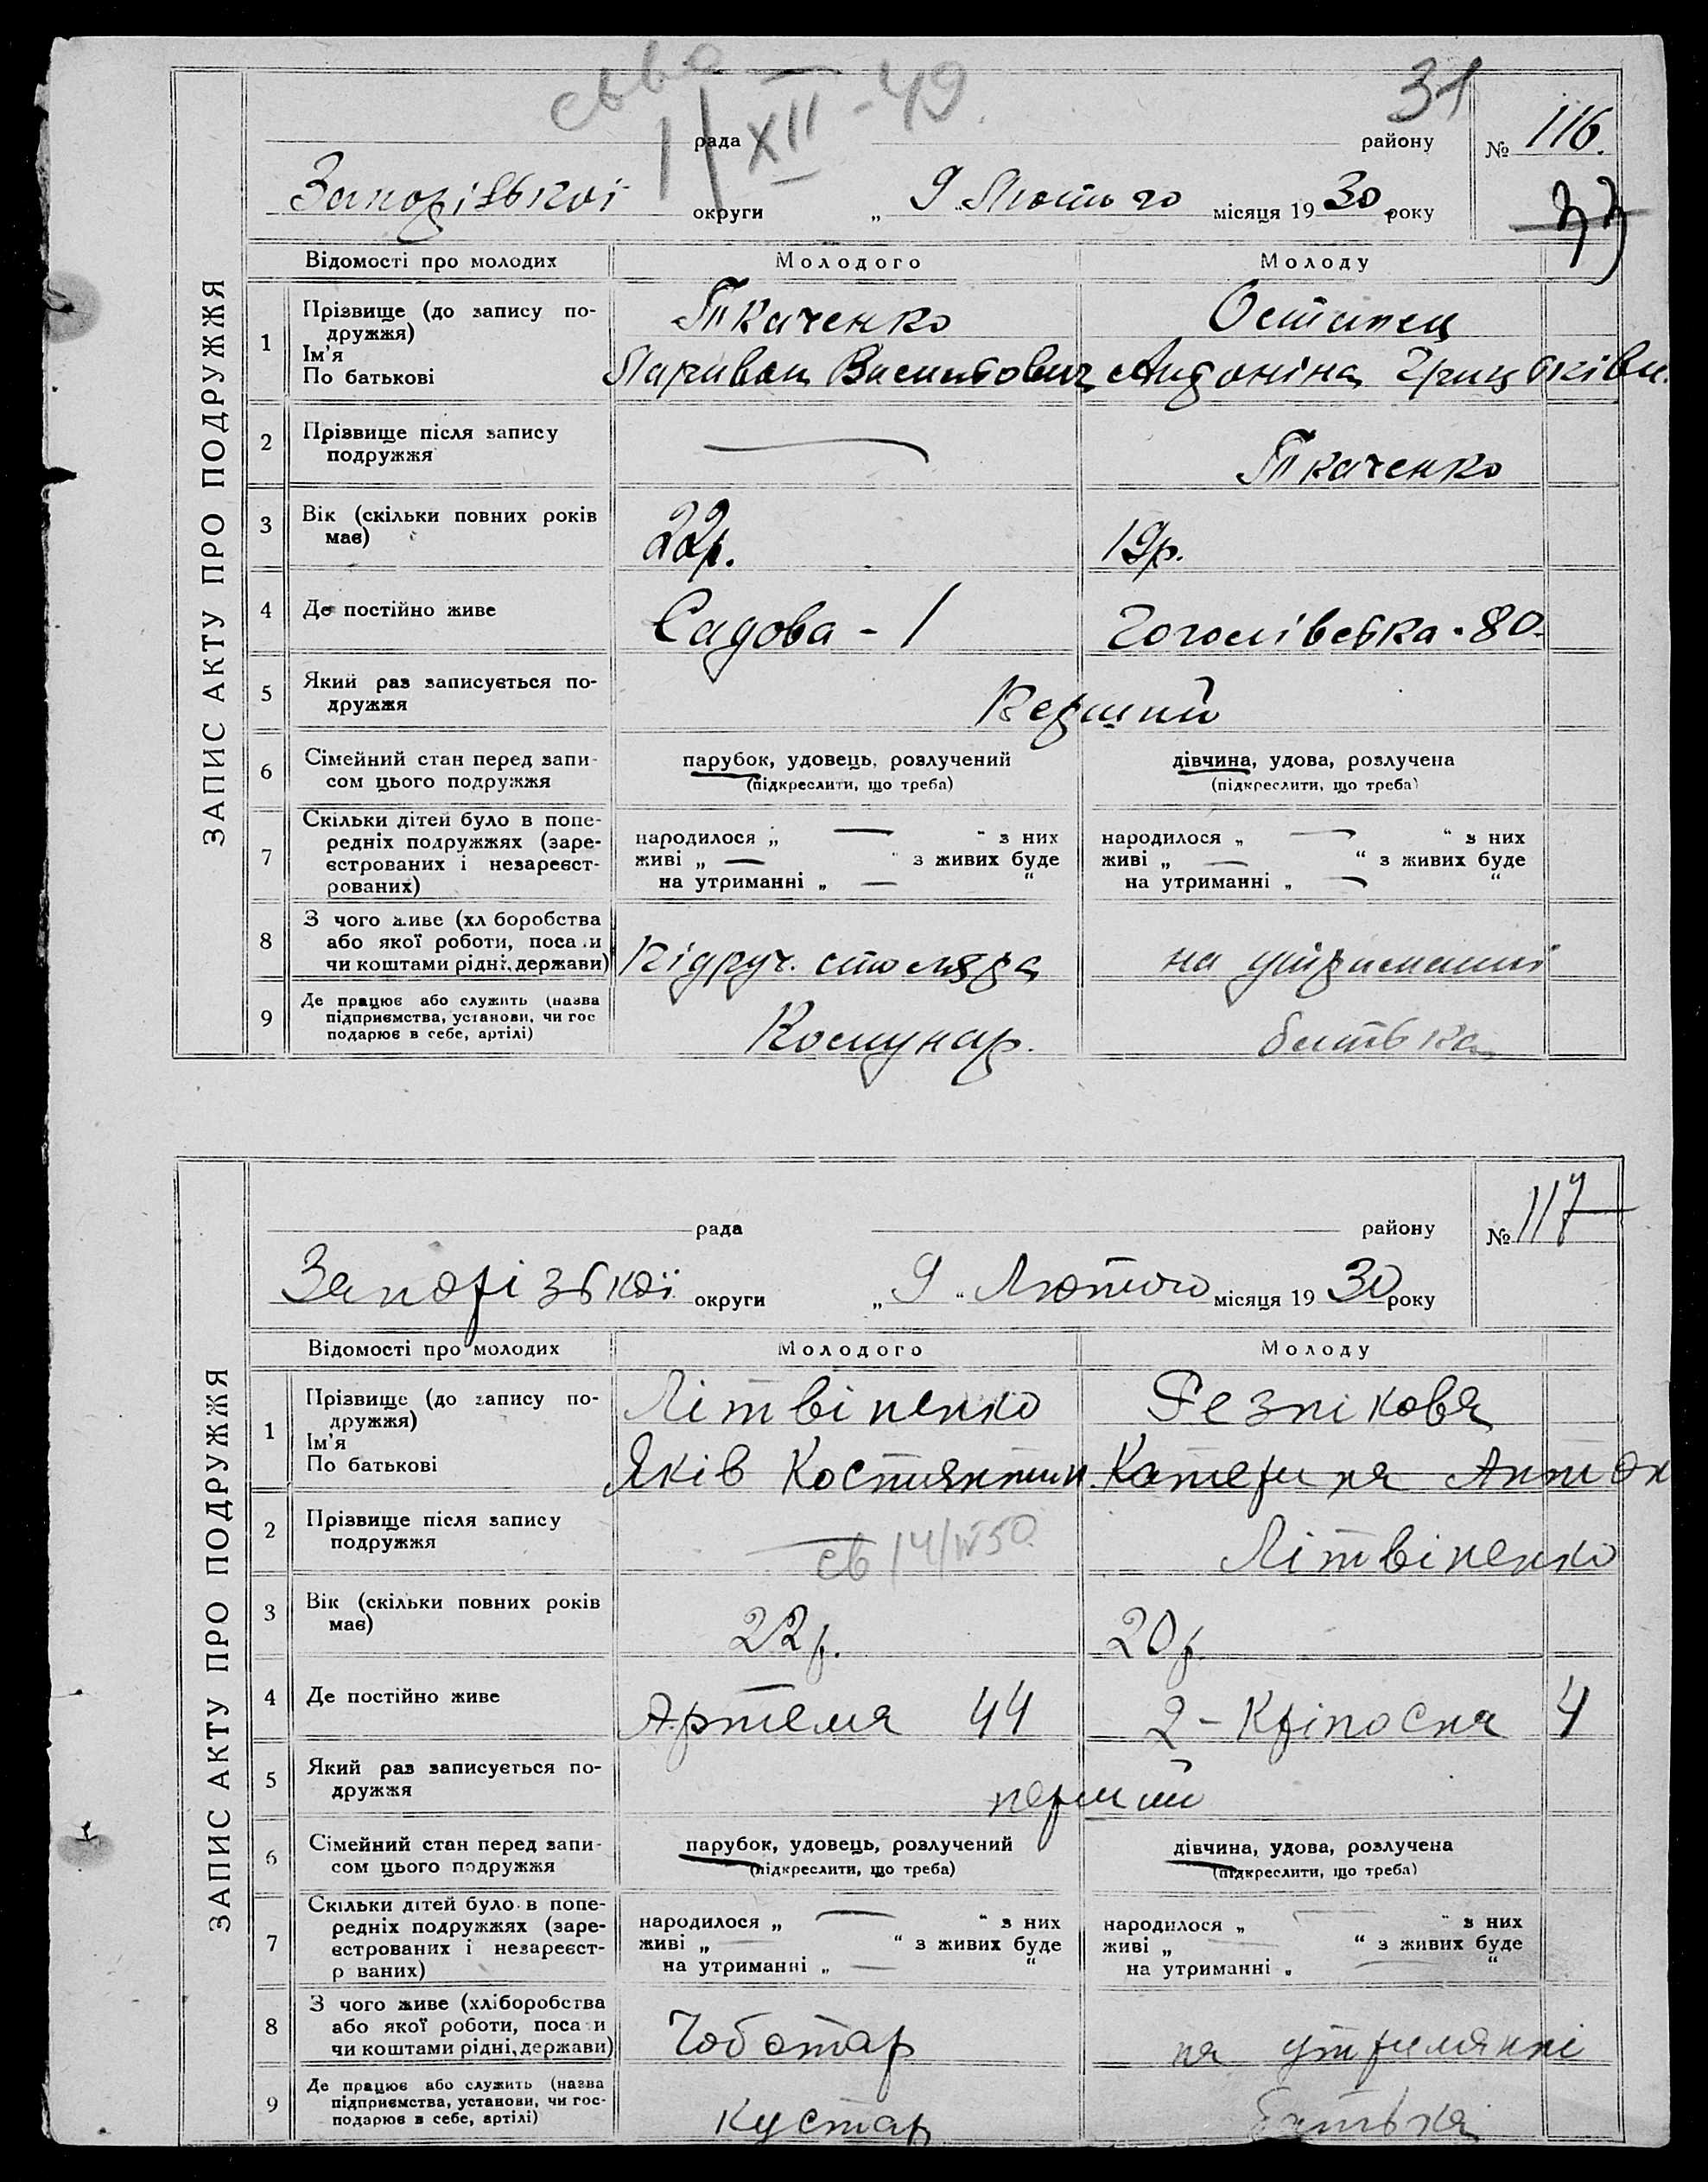 31
XII - 49
рада
району
№ 116.
Запорізької округи
„ 9 " Лютого місяця 1930 року
33
ЗАПИС АКТУ ПРО ПОДРУЖЖЯ
Відомості про молодих
Молодого
Молоду
1
Прізвище (до запису по-
дружжя)
Ім'я
По батькові
Ткаченко
Остапец
Ларивон Васильович
Антоніна Грицьківн.
2
Прізвище після запису
подружжя
—
Ткаченко
3
Вік (скільки повних років
має)
22р.
19р.
4
Де постійно живе
Садова - 1
Гоголівська - 80
5
Який раз записується по-
дружжя
Перший
6
Сімейний стан перед запи-
сом цього подружжя
парубок, удовець, розлучений
(підкреслити, що треба)
дівчина, удова, розлучена
(підкреслити, що треба)
7
Скільки дітей було в попе-
редніх подружжях (заре-
єстрованих і незареєст-
рованих)
народилося „ — " з них
живі „ — " з живих буде
на утриманні „ — "
народилося „ — " з них
живі „ — " з живих буде
на утриманні „ — "
8
З чого живе (хл боробства
або якої роботи, поса и
чи коштами рідні, держави)
Підруч. столяра
на утриманні
9
Де працює або служить (назва
підприємства, установи, чи гос
подарює в себе, артілі)
Комунар.
батька
рада
району
№ 117
Запорізької округи
„ 9 " Лютого місяця 1930 року
ЗАПИС АКТУ ПРО ПОДРУЖЖЯ
Відомості про молодих
Молодого
Молоду
1
Прізвище (до запису по-
дружжя)
Ім'я
По батькові
Літвіненко
Резнікова
Яків Костянтин.
Катерина Антон
2
Прізвище після запису
подружжя
—
св 14/IV 50
Літвіненко
3
Вік (скільки повних років
має)
22р.
20р.
4
Де постійно живе
Артема 44
2 - Кріпосна 4
5
Який раз записується по-
дружжя
перший
6
Сімейний стан перед запи-
сом цього подружжя
парубок, удовець, розлучений
(підкреслити, що треба)
дівчина, удова, розлучена
(підкреслити, що треба)
7
Скільки дітей було в попе-
редніх подружжях (заре-
єстрованих і незареєст-
р ваних)
народилося „ — " з них
живі „ — " з живих буде
на утриманні „ — "
народилося „ — " з них
живі „ — " з живих буде
на утриманні „ — "
8
З чого живе (хліборобства
або якої роботи, поса и
чи коштами рідні, держави)
Чоботар
на утриманні
9
Де працює або служить (назва
підприємства, установи, чи гос-
подарює в себе, артілі)
кустар
батька